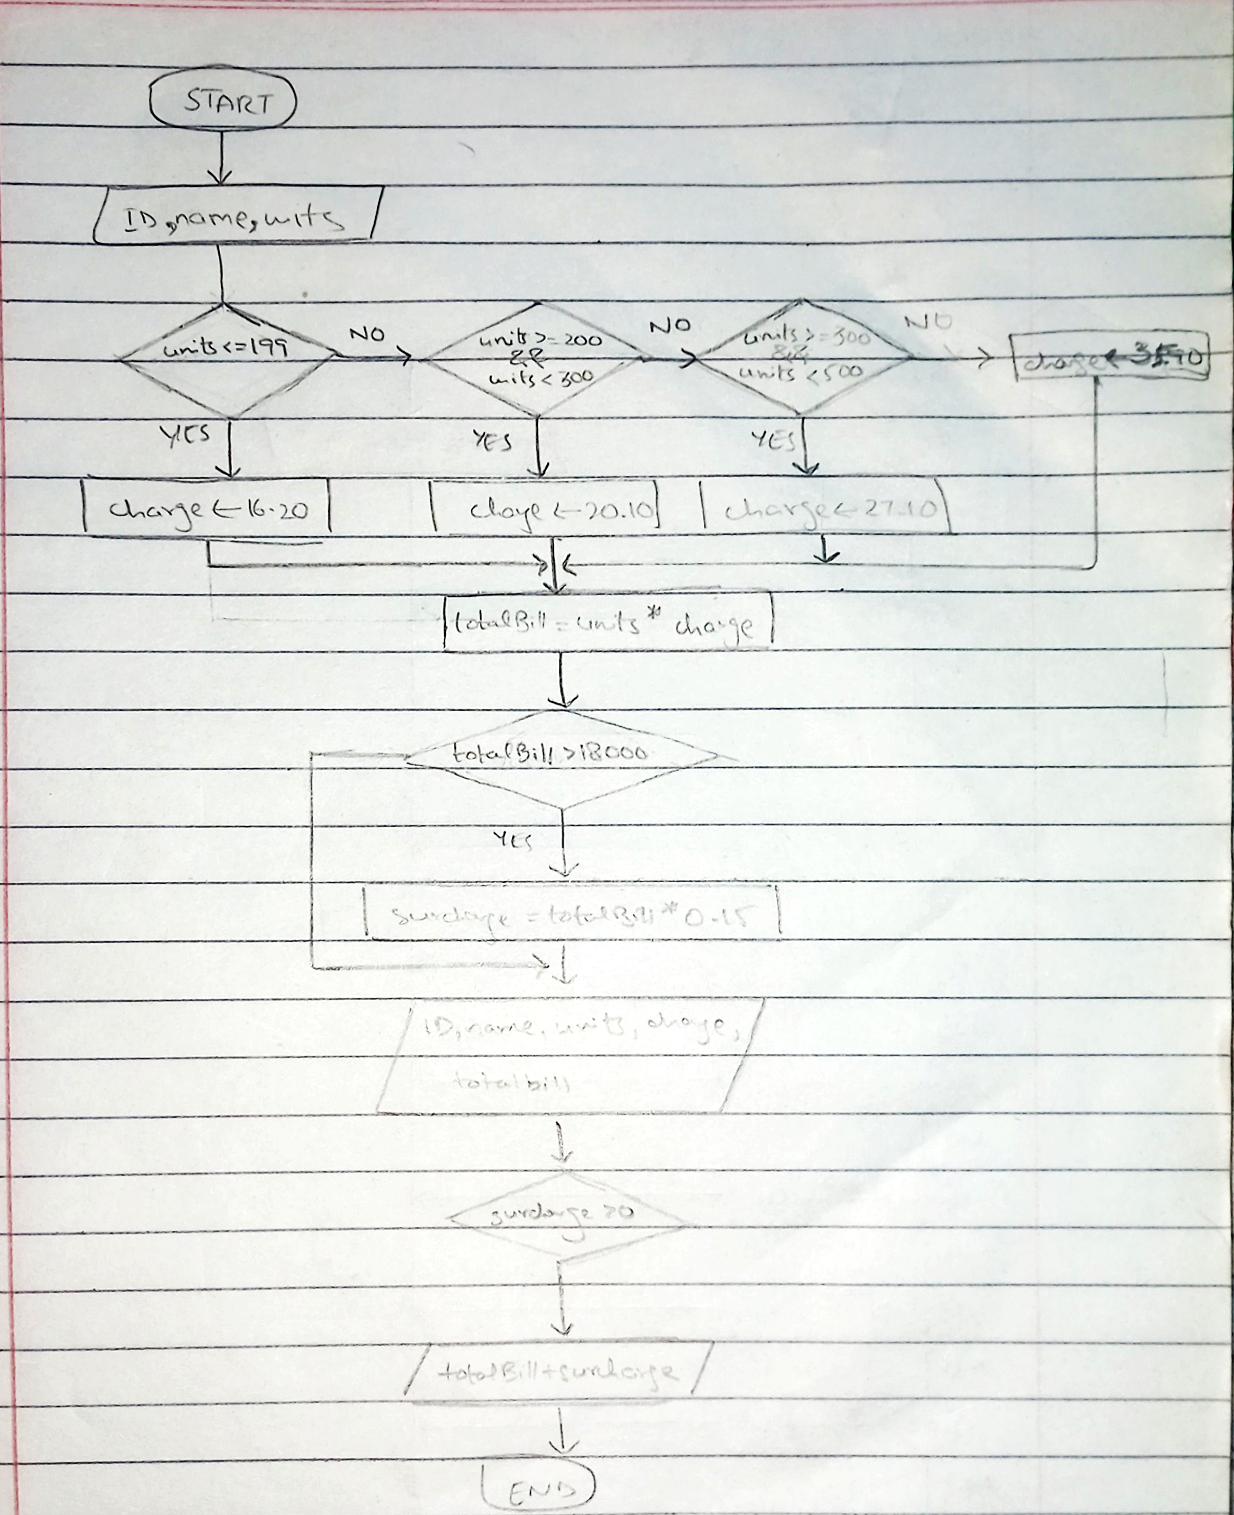 START
ID, name, units
units <= 199
NO
units >= 200
&&
units < 300
NO
units >= 300
&&
units < 500
NO
charge ← 35.90
YES
YES
YES
charge ← 16.20
charge ← 20.10
charge ← 27.10
totalBill = units * charge
totalBill > 18000
YES
surcharge = totalBill * 0.15
ID, name, units, charge,
totalbill
surcharge > 0
totalBill + surcharge
END